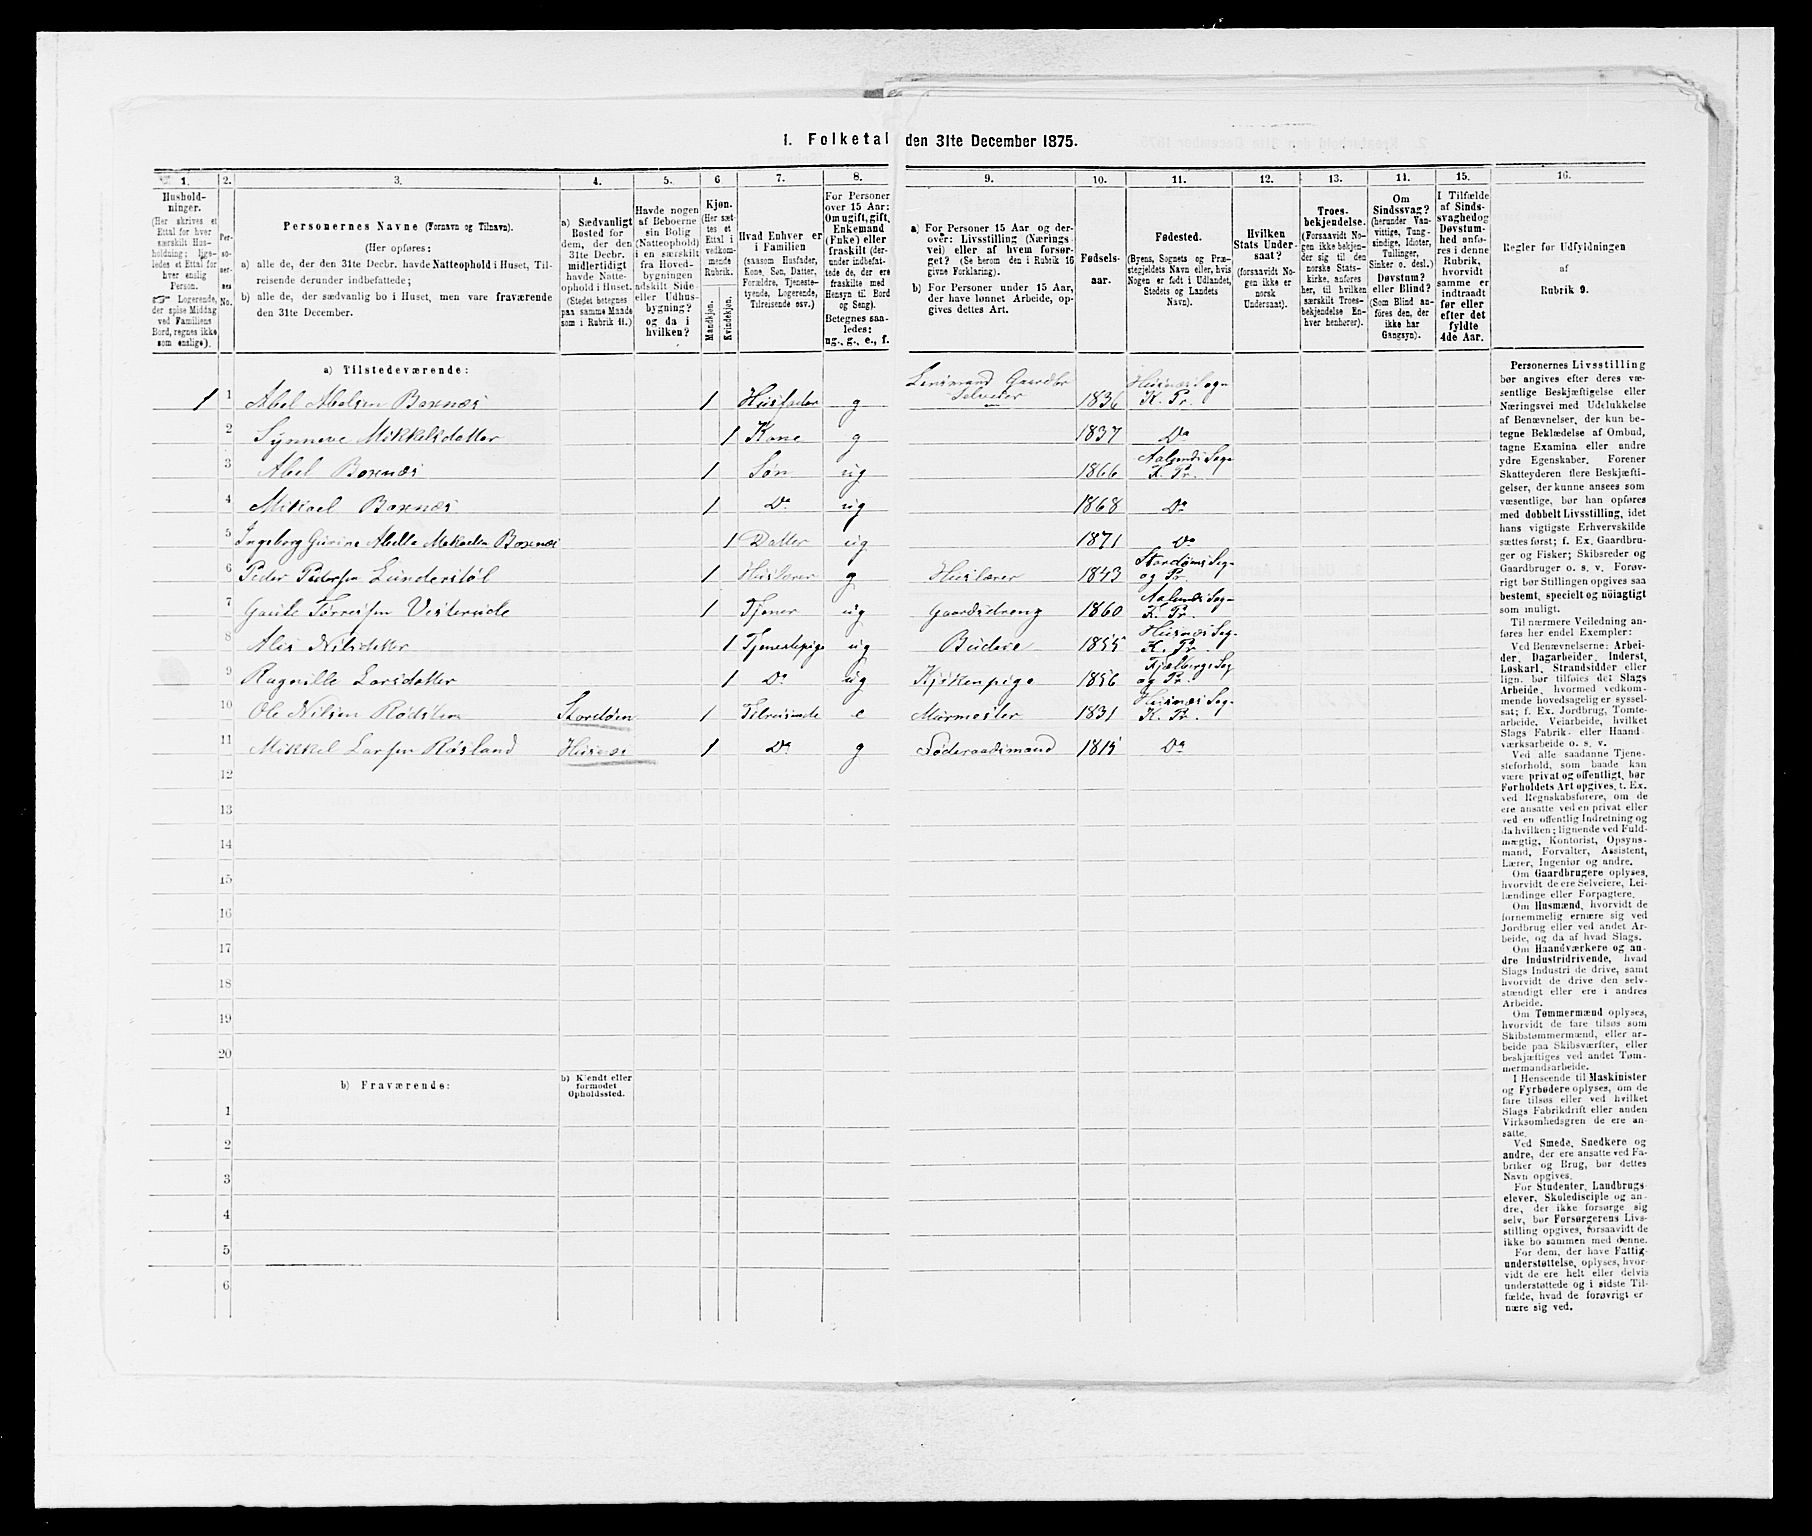 1. Folketal den 31te December 1875.
1. 2. 3. 4. 5. 6 7. 8. 9. 10. 11. 12. 13. 14. 15. 16.
Hushold-
ninger.
(Her skrives et
Ettal for hver
særskilt Hus-
holdning; lige-
ledes et Ettal for
hver enslig
Person.
☞ Logerende,
der spise Middag
ved Familiens
Bord, regnes ikke
som enslige).
Per-
so-
ner-
nes
No.
Personernes Navne (Fornavn og Tilnavn).
(Her opføres:
a) alle de, der den 31te Decbr. havde Natteophold i Huset, Til-
reisende derunder indbefattede;
b) alle de, der sædvanlig bo i Huset, men vare fraværende
den 31te December.
a) Sædvanligt
Bosted for
dem, der den
31te Decbr.
midlertidigt
havde Natte-
ophold i Huset.
(Stedet betegnes
paa samme Maade
som i Rubrik 11.)
Havde nogen
af Beboerne
sin Bolig
(Natteophold)
i en særskilt
fra Hoved-
bygningen
adskilt Side-
eller Udhus-
bygning?
og da i
hvilken?
Kjøn.
(Her sæt-
tes et
Ettal i
vedkom-
mende
Rubrik.
Mandkjøn.
Kvindekjøn.
Hvad Enhver er
i Familien
(saasom Husfader,
Kone, Søn, Datter,
Forældre, Tjeneste-
tyende, Logerende,
Tilreisende osv.)
For Personer
over 15 Aar:
Om ugift, gift,
Enkemand
(Enke) eller
fraskilt (der-
under indbefat-
tede de, der ere
fraskilte med
Hensyn til Bord
og Seng).
Betegnes saa-
ledes:
ug., g., e., f.
a) For Personer 15 Aar og der-
over: Livsstilling (Nærings
vei) eller af hvem forsør-
get? (Se herom den i Rubrik 16
givne Forklaring).
b) For Personer under 15 Aar,
der have lønnet Arbeide, op-
gives dettes Art.
Fødsels-
aar.
Fødested.
(Byens, Sognets og Præ-
stegjeldets Navn eller, hvis
Nogen er født i Udlandet,
Stedets og Landets
Navn).
Hvilken
Stats Under-
saat?
(forsaavidt No-
gen ikke er
norsk
Undersaat).
Troes-
bekjendelse.
(Forsaavidt No-
gen ikke bekjen-
der sig til den
norske Stats-
kirke, anføres
her, til hvilken
særskilt Troes-
bekjendelse En-
hver henhører).
Om
Sindssvag?
(herunder Van-
vittige, Tung-
sindige, Idioter,
Tullinger,
Sinker o. desl.)
Døvstum?
eller Blind?
(Som Blind an-
føres den, der
ikke har
Gangsyn).
I Tilfælde
af Sinds-
svaghed og
Døvstum-
hed anfø-
res i denne
Rubrik,
hvorvidt
samme er
indtraadt
før eller
efter det
fyldte
4de Aar.
Regler for Udfyldningen
af
Rubrik 9.
a) Tilstedeværende:
1 1 Abel Abelsen Boxnæs 1 Husfader g Lensmand Gaardbr Selveier 1836 Husnæs Sogn K. Pr.
2 Synneve Mikkelsdatter 1 Kone g 1837 Do
3 Abel Boxnæs 1 Søn ug 1866 Aalunds Sog- K. Pr.
4 Mikael Boxnæs 1 Do ug 1868 Do
5 Ingeborg Gurine Abella Mikaela Boxnæs 1 Datter ug 1871 Do
6 Peder Pedersen Lunderstøl 1 Huslærer g Huslærer 1843 Stordøens Sog- og Pr.
7 Gaute Tørresen Vestervide 1 Tjener ug Gaardsdreng 1860 Aalunds Sog- K. Pr.
8 Alis Nilsdatter 1 Tjenestepige ug Budeie 1855 Husnæs Sog- K. Pr.
9 Ragnille Larsdatter 1 Do ug Kjøkenpige 1856 Fjælbergs Sog og Pr.
10 Ole Nilsen Rødsten Stordøen 1 Tilreisende e Murmester 1831 Husnæs Sog- K. Pr.
11 Mikkel Larsen Røsland Husnæs 1 Do g Føderaadsmand 1815 Do
12
13
14
15
16
17
18
19
20
b) Fraværende:
b) Kjendt eller
formodet
Opholdssted.
1
2
3
4
5
6
Personernes Livsstilling
bør angives efter deres væ-
sentlige Beskjæftigelse eller
Næringsvei med Udelukkelse
af Benævnelser, der kun be-
tegne Beklædelse af Ombud,
tagne Examina eller andre
ydre Egenskaber. Forener
Skatteyderen flere Beskjæfti-
gelser, der kunne ansees som
væsentlige, bør han opføres
med dobbelt Livsstilling, idet
hans vigtigste Erhvervskilde
sættes først; f. Ex. Gaardbru-
ger og Fisker; Skibsreder og
Gaardbruger o. s. v. Forøv-
rigt bør Stillingen opgives saa
bestemt, specielt og nöiagtigt
som muligt.
Til nærmere Veiledning an-
føres her endel Exempler:
Ved Benævnelserne: Arbei-
der, Dagarbeider, Inderst,
Løskarl, Strandsidder eller
lign. bør tilføies det Slags
Arbeide, hvormed vedkom-
mende hovedsagelig er syssel-
sat; f. Ex. Jordbrug, Tomte-
arbeide, Veiarbeide, hvilket
Slags Fabrik- eller Haand-
værksarbeide o. s. v.
Ved alle saadanne Tjene-
steforhold, som baade kan
være privat og offentligt, bør
Forholdets Art opgives, t. Ex.
ved Regnskabsførere, om de
ere ansatte ved en privat eller
ved en offentlig Indretning og
da hvilken; lignende ved Fuld-
mægtig, Kontorist, Opsyns-
mand, Forvalter, Assistent,
Lærer, Ingeniør og andre.
Om Gaardbrugere oplyses,
hvorvidt de ere Selveiere, Lei-
lændinge eller Forpagtere.
Om Husmænd, hvorvidt de
fornemmelig ernære sig ved
Jordbrug eller ved andet Ar-
beide, og da af hvad Slags.
Om Haandværkere og an-
dre Industridrivende, hvad
Slags Industri de drive, samt
hvorvidt de drive den selv-
stændigt eller ere i andres
Arbeide.
Om Tømmermænd oplyses,
hvorvidt de fare tilsøs som
Skibstømmermænd, eller ar-
beide paa Skibsværfter, eller
beskjæftiges ved andet Tøm-
mermandsarbeide.
I Henseende til Maskinister
og Fyrbødere oplyses, om de
fare tilsøs eller ved hvilket
Slags Fabrikdrift eller anden
Virksomhedsgren de ere an-
satte.
Ved Smede, Snedkere og
andre, der ere ansatte ved Fa-
briker og Brug, bør dettes
Navn opgives.
For Studenter, Landbrugs-
elever, Skoledisciple og an-
dre, der ikke forsørge sig
selv, bør Forsørgerens Livs-
stilling opgives, forsaavidt de
ikke bo sammen med denne.
For dem, der have Fattig-
understøttelse, oplyses, hvor-
vidt de ere helt eller delvis
understøttede og i sidste Til-
fælde, hvad de forøvrigt er-
nære sig ved.